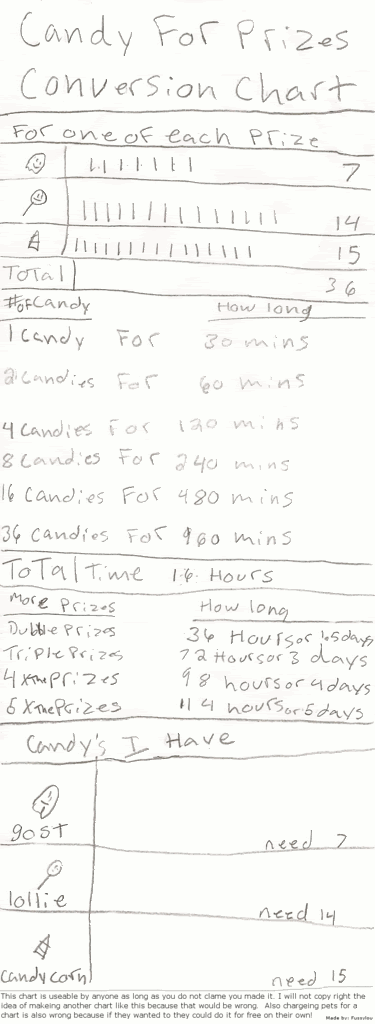 Candy For Prizes
Conversion Chart
For one of each Prize
7
14
15
Total 36
#ofCandy How long
1 Candy For 30 mins
2 Candies For 60 mins
4 Candies For 120 mins
8 Candies For 240 mins
16 Candies For 480 mins
36 Candies For 960 mins
Total Time 16 Hours
More Prizes How long
Dubble Prizes 36 Hours or 1.5days
Triple Prizes 72 Hours or 3 days
4 Xthe Prizes 98 hours or 4days
5 Xthe Prizes 114 hours or 5days
Candy's I Have
gost need 7
lollie need 14
candy corn need 15
This chart is useable by anyone as long as you do not clame you made it. I will not copy right the
idea of makeing another chart like this because that would be wrong. Also chargeing pets for a
chart is also wrong because if they wanted to they could do it for free on their own! Made by: Fuseylou